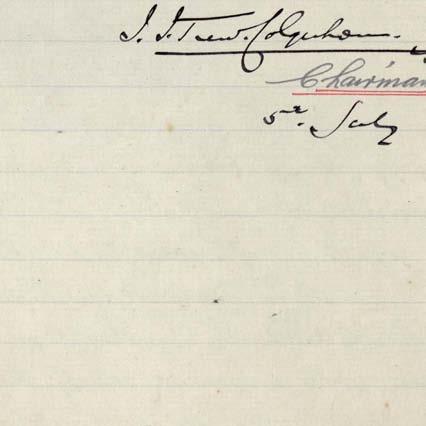 J. F. Trew. Colquhoun.
Chairman
5th July